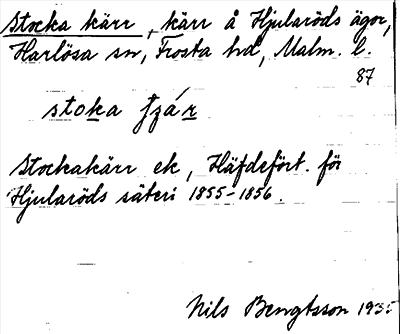 Stocka kärr, kärr å Hjularöds ägor,
Harlösa sn, Frosta hd, Malm. l.
87
stoka tzár
Stockakärr ek, Häfdefört. för
Hjularöds säteri 1855-1856.
Nils Bengtsson